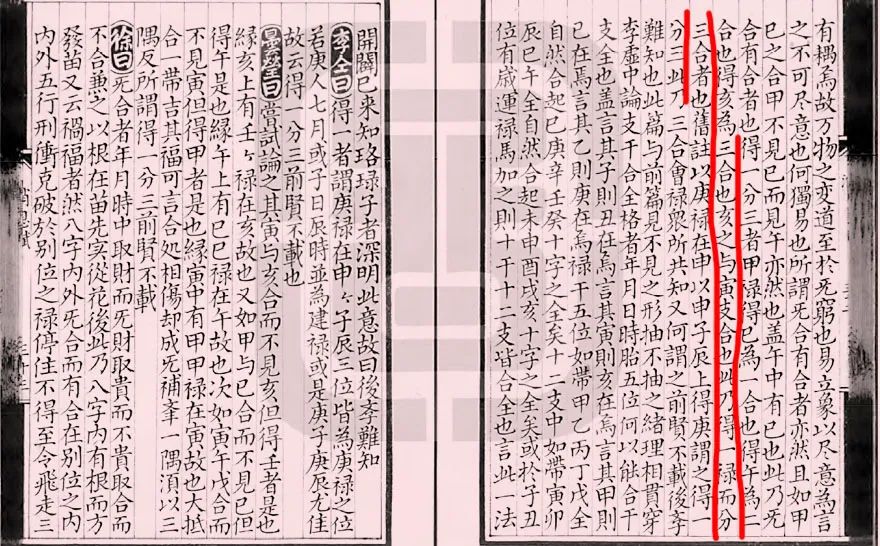 有耦焉故万物之变道至於旡窮也易立象以尽意為言
之不可尽意也何獨易也所謂旡合有合者亦然且如甲
巳之合甲不見巳而見午亦然也盖午中有巳也此乃旡
合有合者也得一分三者甲禄得巳為一合也得午為二
合也得亥為三合也亥之与寅支合也此乃得一禄而分
三合者也舊註以庚禄在申以申子辰上得庚謂之得一
分三此乃三合會禄衆所共知又何謂之前賢不載後斈
難知也此篇与前篇見不見之形抽不抽之緒理相貫穿
李虛中論支干合全格者年月日時胎五位何以能合干
支全也盖言其子則丑在焉言其寅則亥在焉言其甲則
巳在焉言其乙則庚在焉禄干五位如帶甲乙丙丁戊全
自然合起巳庚辛壬癸十字之全矣十二支中如帶寅卯
辰巳午全自然合起未申酉戌亥十字之全矣或於子丑
位有歳運禄馬加之則十干十二支皆合全也言此一法
開闢已来知珞琭子者深明此意故曰後斈難知
李仝曰得一者謂庚禄在申々子辰三位皆為庚禄之位
若庚人七月或子日辰時並為建禄或是庚子庚辰尤佳
故云得一分三前賢不載也
曇瑩曰嘗試論之其寅与亥合而不見亥但得壬者是也
縁亥上有壬々禄在亥故也又如甲与巳合而不見巳但
得午是也縁午上有巳巳禄在午故也次如寅午戊合而
不見寅但得甲者是也縁寅中有甲甲禄在寅故也大抵
合一帶言其福可言合処相傷却成旡補夆一隅湏以三
隅反所謂得一分三前賢不載
徐曰旡合者年月時中取財而旡財取貴而不貴取合而
不合兼之以根在苗先実從花後此乃八字内有根而方
發苗又云禍福者然八字内外旡合而有合在別位之内
内外五行刑衝克破於別位之禄停住不得至令飛走三